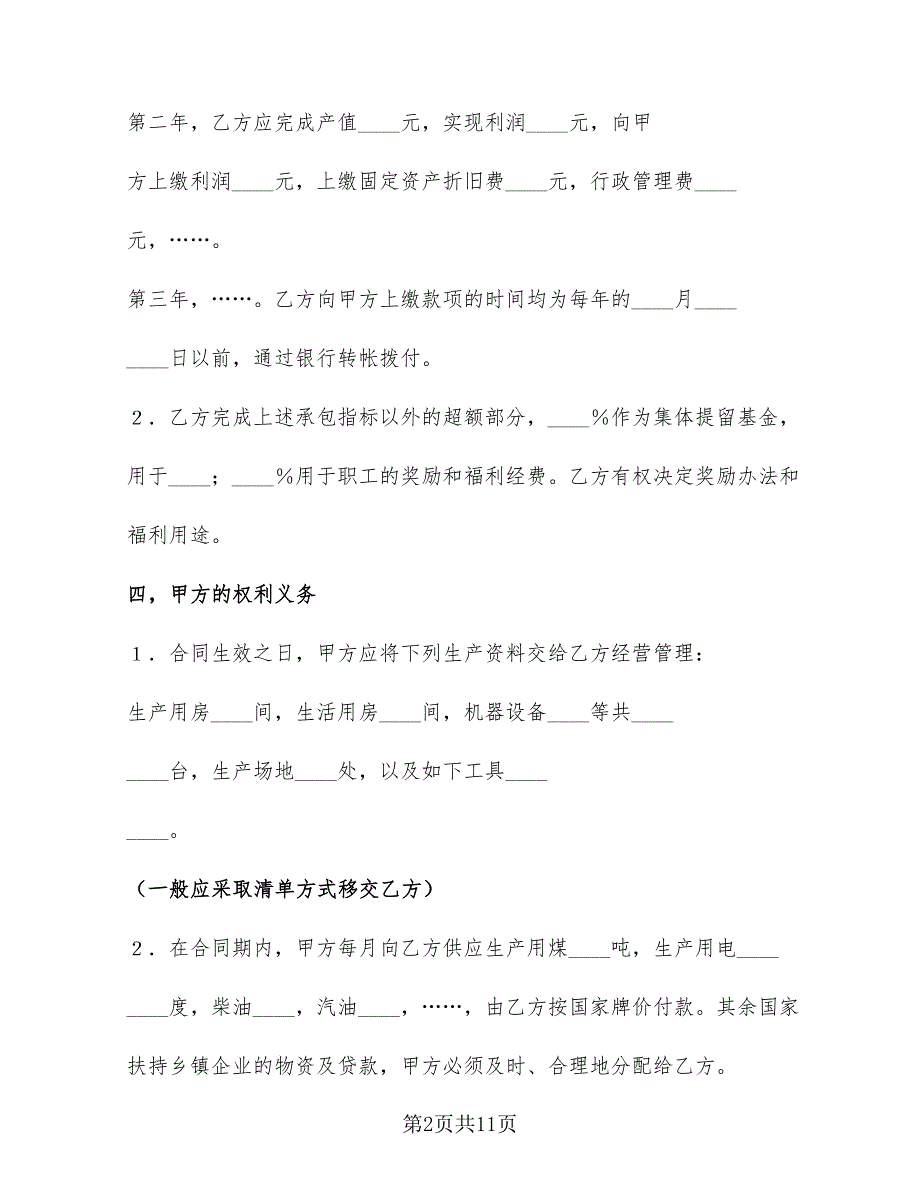 第二年，乙方应完成产值____元，实现利润____元，向甲
方上缴利润____元，上缴固定资产折旧费____元，行政管理费____
元，……。
第三年，……。乙方向甲方上缴款项的时间均为每年的____月____
____日以前，通过银行转帐拨付。
２．乙方完成上述承包指标以外的超额部分，____％作为集体提留基金，
用于____；____％用于职工的奖励和福利经费。乙方有权决定奖励办法和
福利用途。
四，甲方的权利义务
１．合同生效之日，甲方应将下列生产资料交给乙方经营管理：
生产用房____间，生活用房____间，机器设备____等共____
____台，生产场地____处，以及如下工具____
____。
（一般应采取清单方式移交乙方）
２．在合同期内，甲方每月向乙方供应生产用煤____吨，生产用电____
____度，柴油____，汽油____，……，由乙方按国家牌价付款。其余国家
扶持乡镇企业的物资及贷款，甲方必须及时、合理地分配给乙方。
第2页共11页